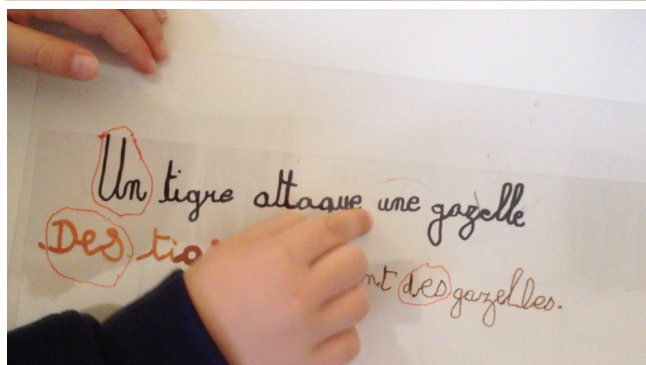 Un tigre attaque une gazelle
Des des gazelles.